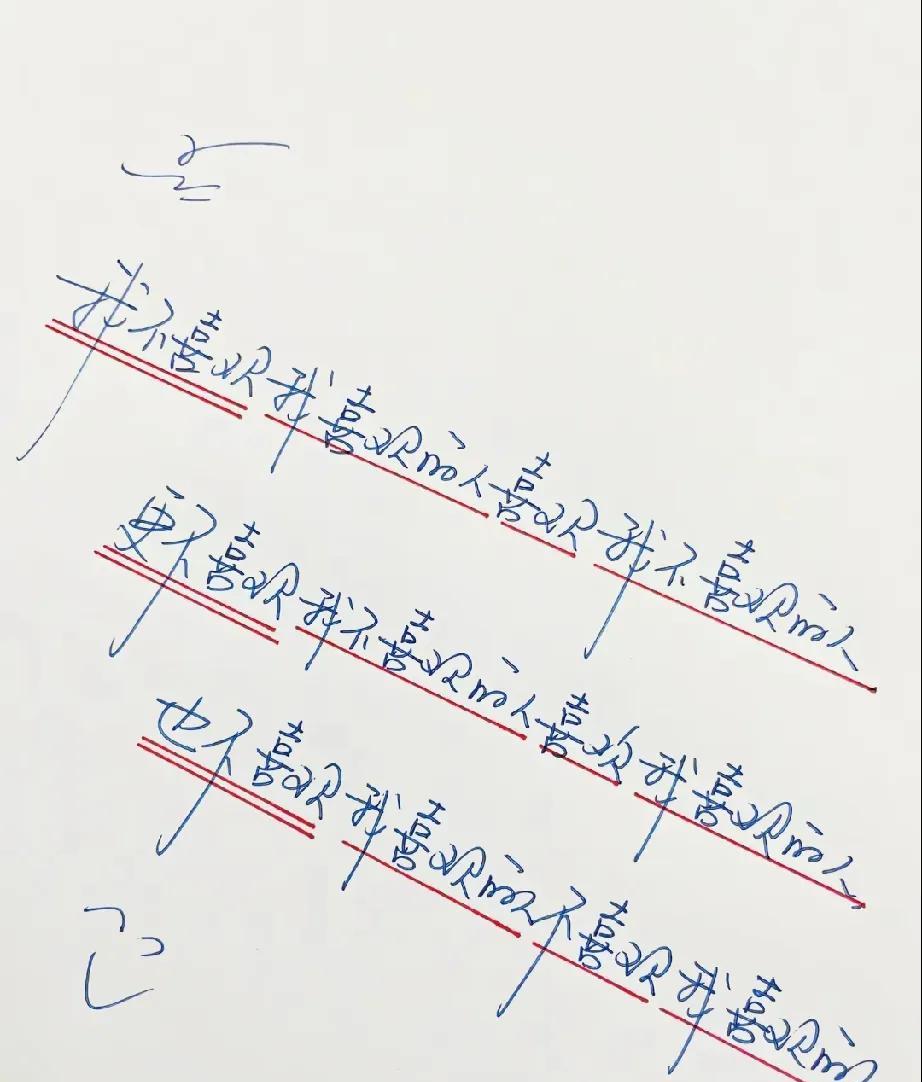 我不喜欢我喜欢的人喜欢我不喜欢的人
更不喜欢我不喜欢的人喜欢我喜欢的人
也不喜欢我喜欢的人不喜欢我喜欢的